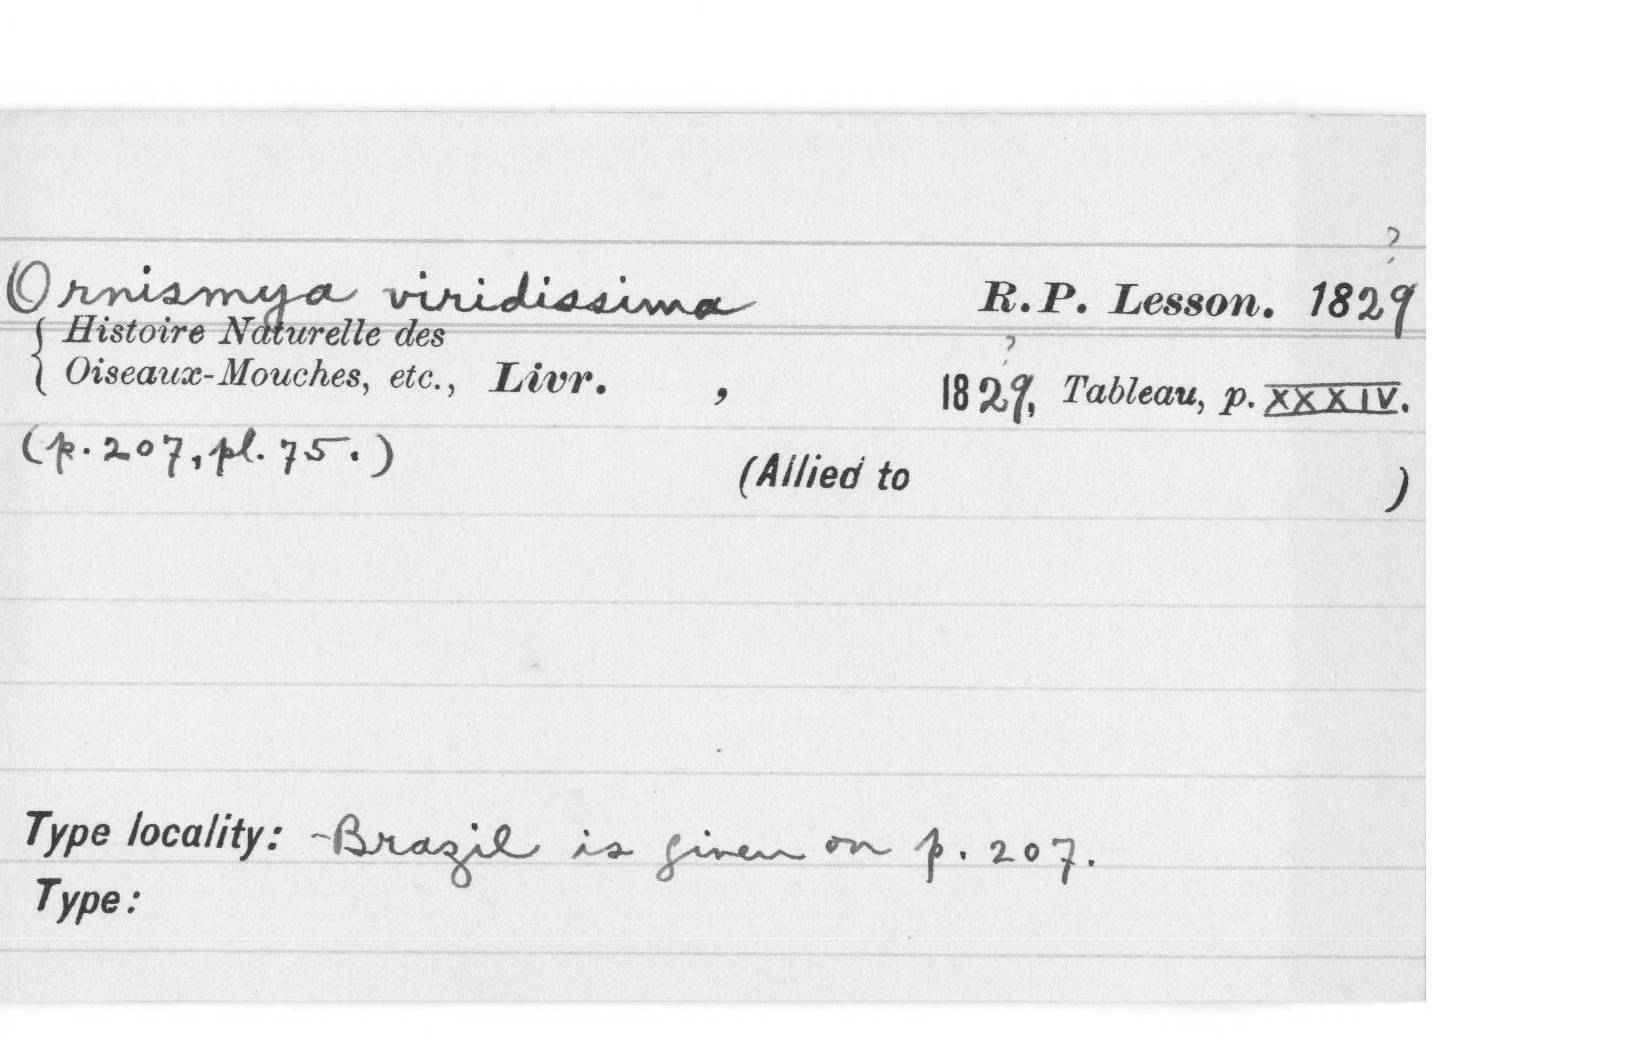 ?
Ornismya viridissima R. P. Lesson. 1829
{ Histoire Naturelle des
?
Oiseaux-Mouches, etc., Livr. , 1829, Tableau, p. XXXIV.
(p. 207, pl. 75.)
(Allied to )
Type locality: Brazil is given on p. 207.
Type: